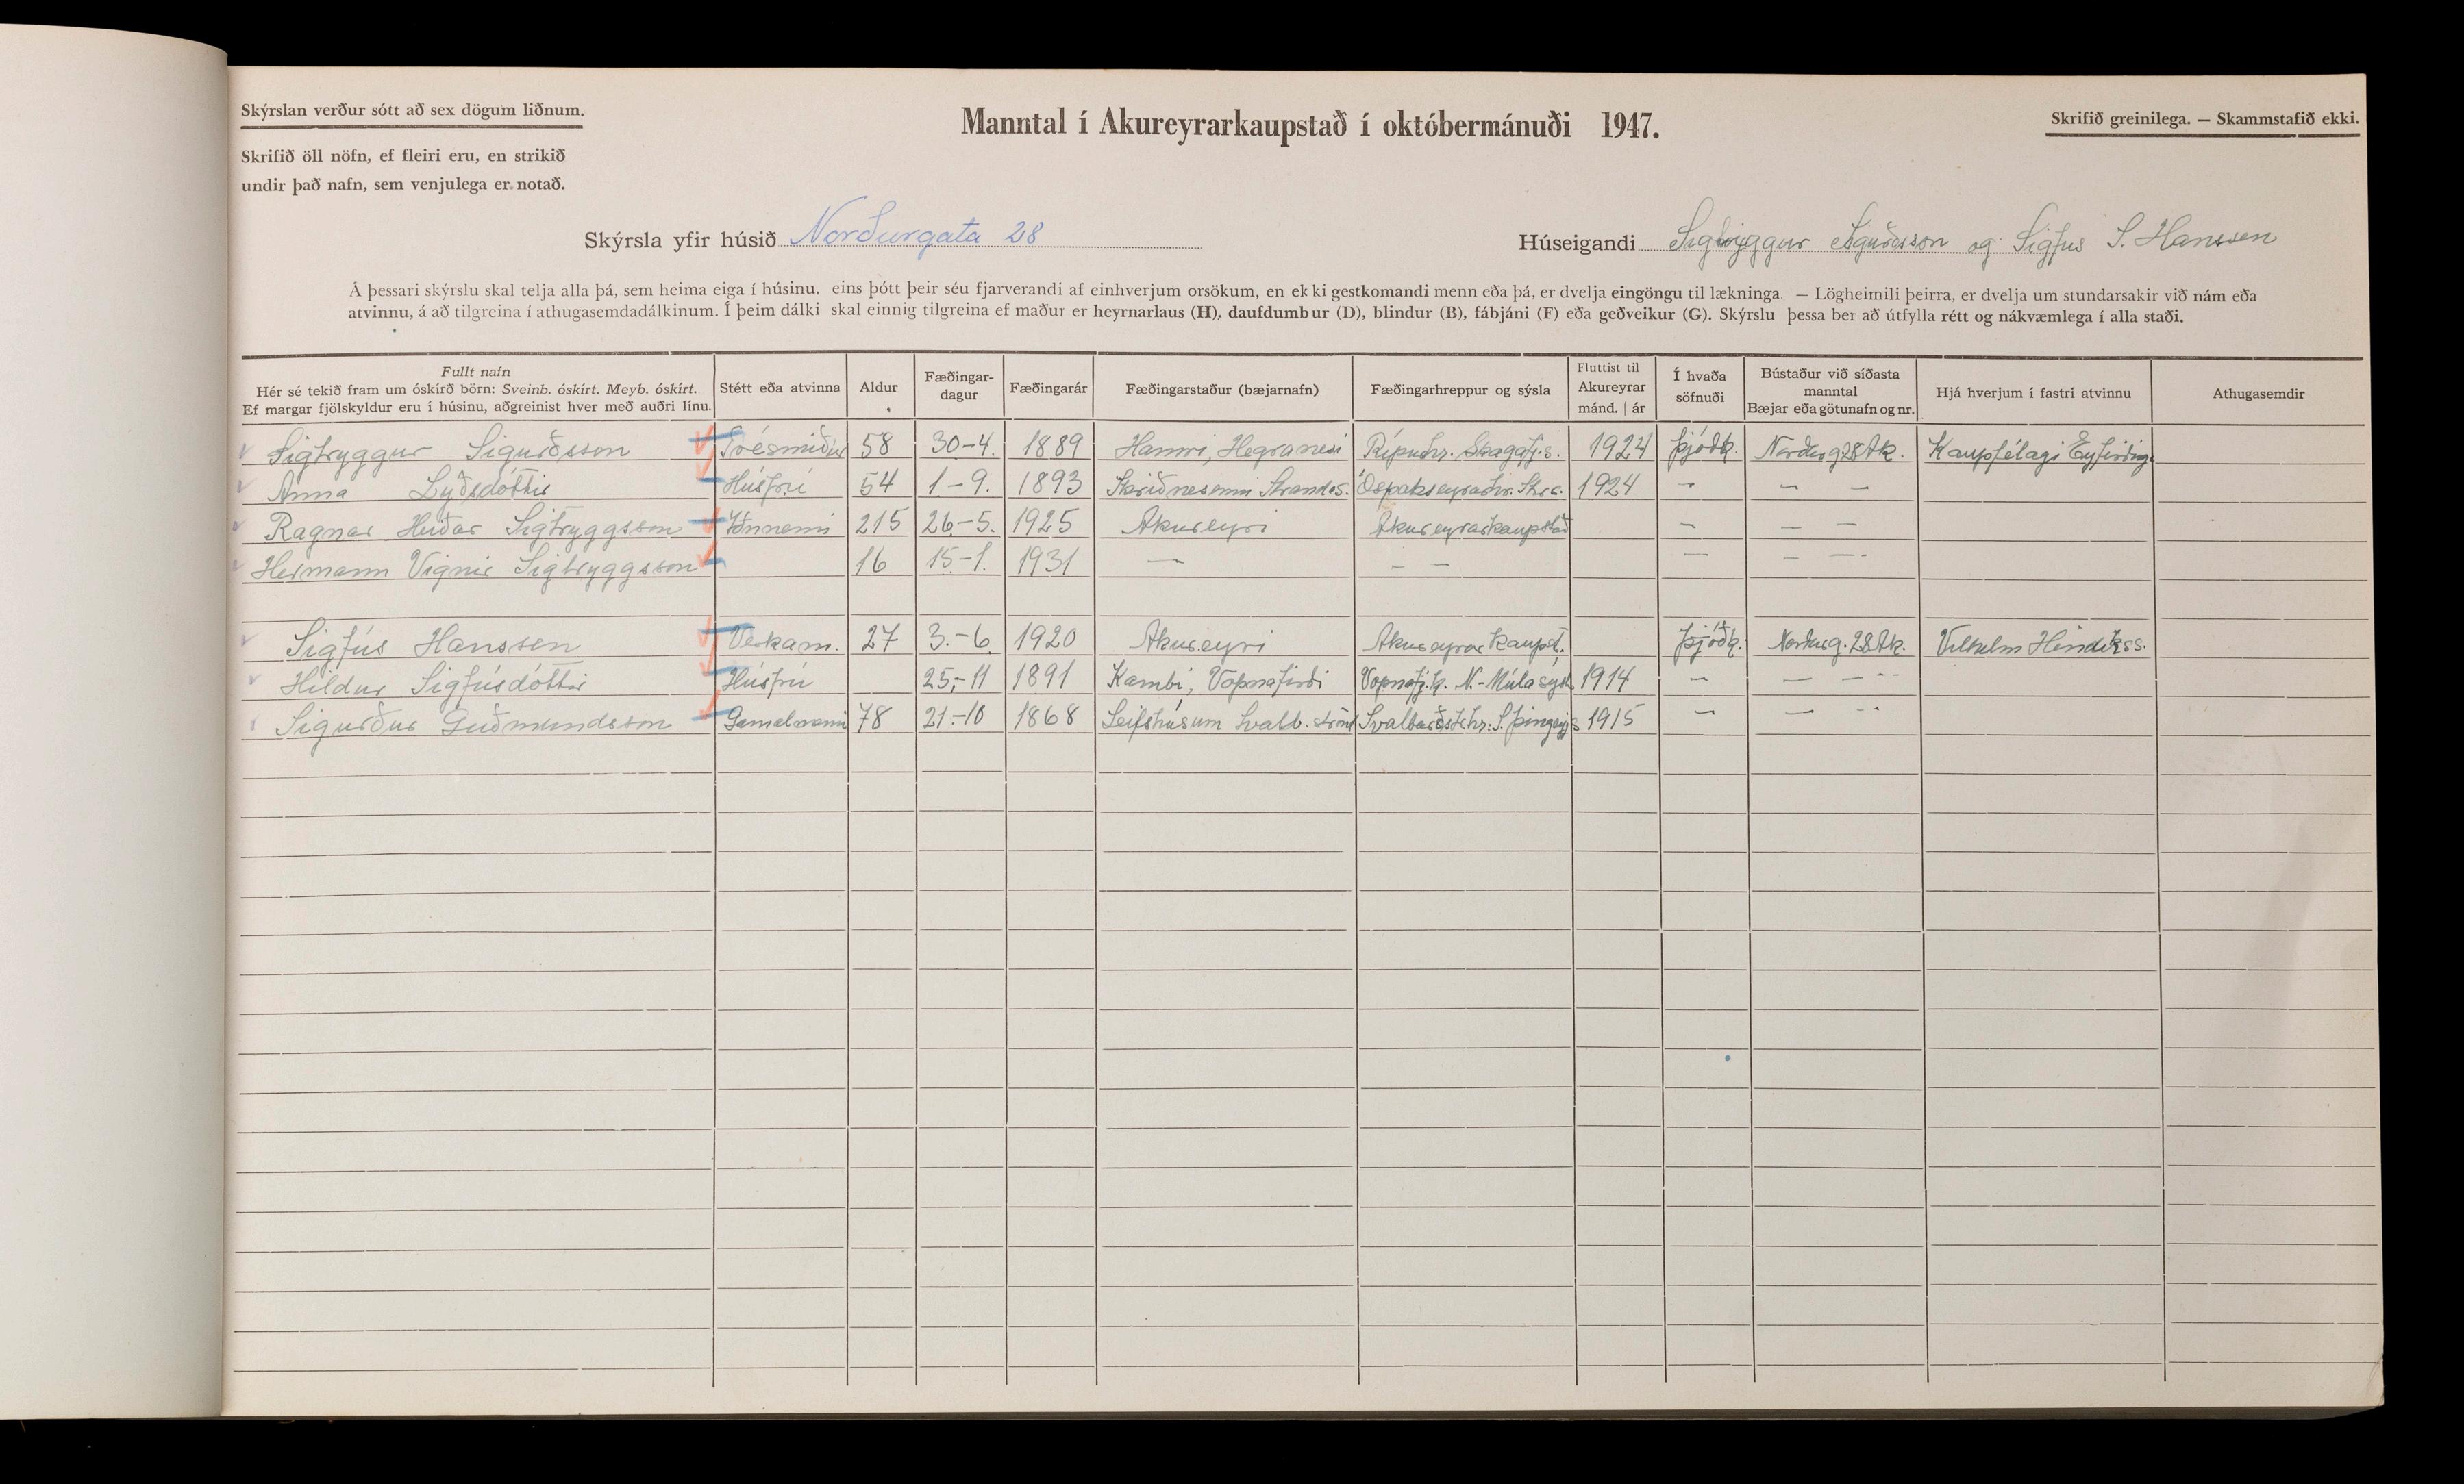 Skýrslan verður sótt að sex dögum liðnum.
Manntal í Akureyrarkaupstað í októbermánuði 1947.
Skrifið greinilega. — Skammstafið ekki.
Skrifið öll nöfn, ef fleiri eru, en strikið
undir það nafn, sem venjulega er notað.
Skýrsla yfir húsið Norðurgata 28
Húseigandi Sigtryggur Sigurðsson og Sigfús S. Hanssen
Á þessari skýrslu skal telja alla þá, sem heima eiga í húsinu, eins þótt þeir séu fjarverandi af einhverjum orsökum, en ekki gestkomandi menn eða þá, er dvelja eingöngu til lækninga. — Lögheimili þeirra, er dvelja um stundarsakir við nám eða
atvinnu, á að tilgreina í athugasemdadálkinum. Í þeim dálki skal einnig tilgreina ef maður er heyrnarlaus (H), daufdumbur (D), blindur (B), fábjáni (F) eða geðveikur (G). Skýrslu þessa ber að útfylla rétt og nákvæmlega í alla staði.
Fullt nafn
Hér sé tekið fram um óskírð börn: Sveinb. óskírt. Meyb. óskírt.
Ef margar fjölskyldur eru í húsinu, aðgreinist hver með auðri línu.
Stétt eða atvinna
Aldur
Fæðingar-
dagur
Fæðingarár
Fæðingarstaður (bæjarnafn)
Fæðingarhreppur og sýsla
Fluttist til
Akureyrar
mánd. | ár
Í hvaða
söfnuði
Bústaður við síðasta
manntal
Bæjar eða götunafn og nr.
Hjá hverjum í fastri atvinnu
Athugasemdir
Sigtryggur Sigurðsson Trésmiður 58 30-4. 1889 Hamri, Hegranesi Rípurhr. Skagafj.s. 1924 Þjóðk. Norðurg 28 Ak. Kaupfélagi Eyfirðing
Anna Lýðsdóttir Húsfrú 54 1.-9. 1893 Skriðnesenni Strandas. Óspakseyrarhr. Str.s. 1924 — — —
Ragnar Heiðar Sigtryggsson Iðnnemi 215 26-5. 1925 Akureyri Akureyrarkaupstað — — —
Hermann Vignir Sigtryggsson 16 15-1. 1931 — — — — — —
Sigfús Hanssen Verkam. 27 3.-6 1920 Akureyri Akureyrar kaupst. Þjóðk. Norðurg. 28 Ak. Vilhelm Hinrikss.
Hildur Sigfúsdóttir Húsfrú 25,-11 1891 Kambi, Vopnafirði Vopnafj.h. N.-Múlasýsl. 1914 — — —
Sigurður Guðmundsson Gamalmenni 78 21.-10 1868 Leifshúsum Svalb.strönd Svalbarðsst.hr. S.Þingeyjs 1915 — — —